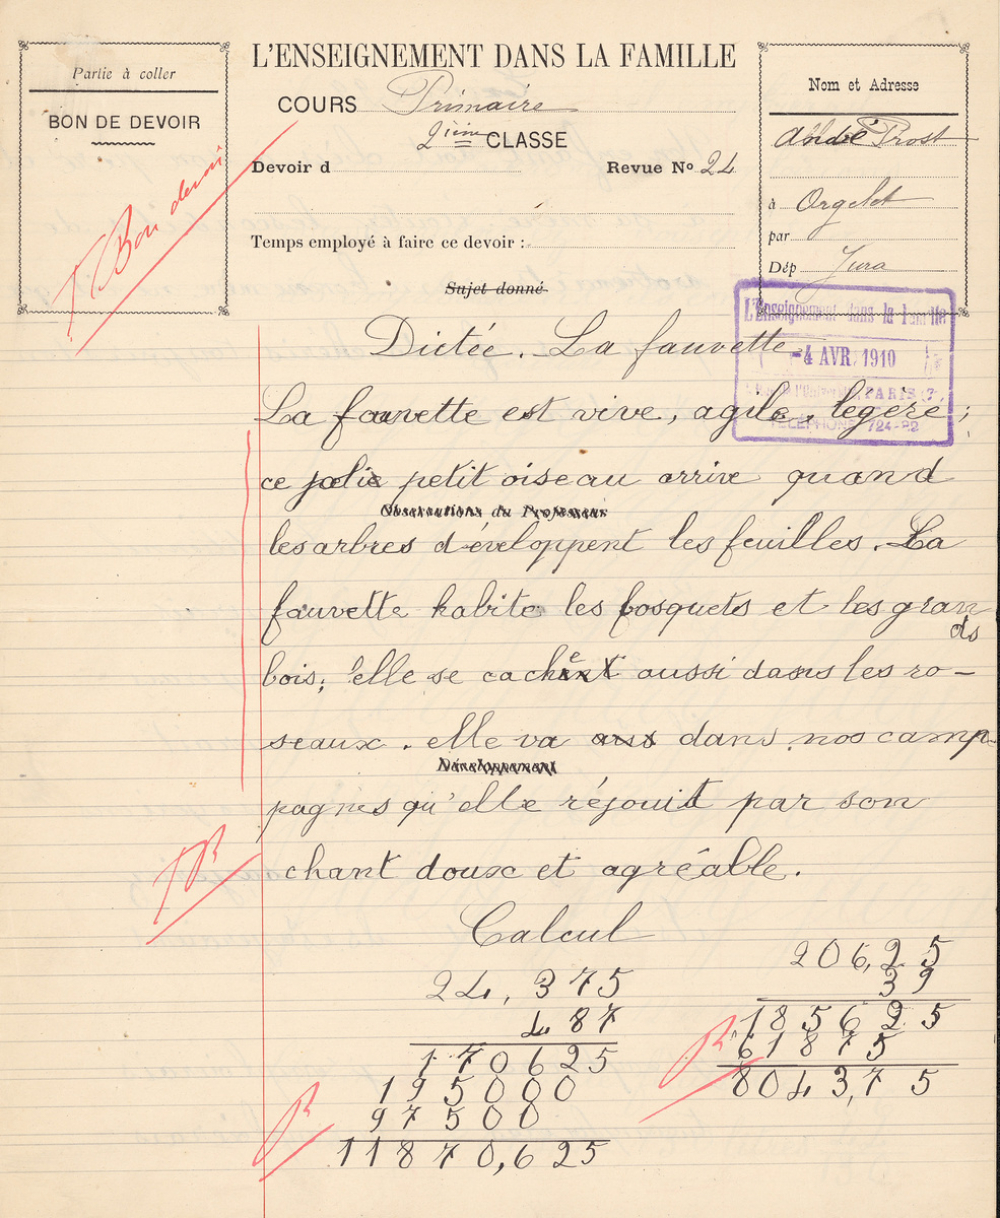 Partie à coller
BON DE DEVOIR
T. Bon devoir
L'ENSEIGNEMENT DANS LA FAMILLE
COURS Primaire
2ième CLASSE
Devoir d
Revue No 24
Temps employé à faire ce devoir :
Sujet donné
Nom et Adresse
André Prost
à Orgelet
par
Dép Jura
L'Enseignement dans la Famille
-4 AVR. 1910
PARIS
TÉLÉPHONE 724-22
Dictée. La fauvette
La fauvette est vive, agile, légère ;
ce joli petit oiseau arrive quand
Observations du Professeur
les arbres développent les feuilles. La
fauvette habite les bosquets et les gran
ds
bois; elle se cache aussi dans les ro-
seaux. elle va dans nos camp-
Développement
pagnes qu'elle réjouit par son
chant doux et agréable.
TB
Calcul
24,375
487
170625
195000
97500
11870,625
B
206,25
39
185625
61875
8043,75
B